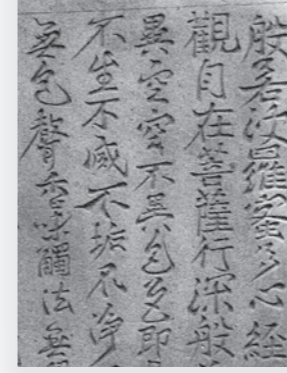 般若波羅蜜多心經
觀自在菩薩行深般
異空空不異色色即
不生不滅不垢不淨
無色聲香味觸法無